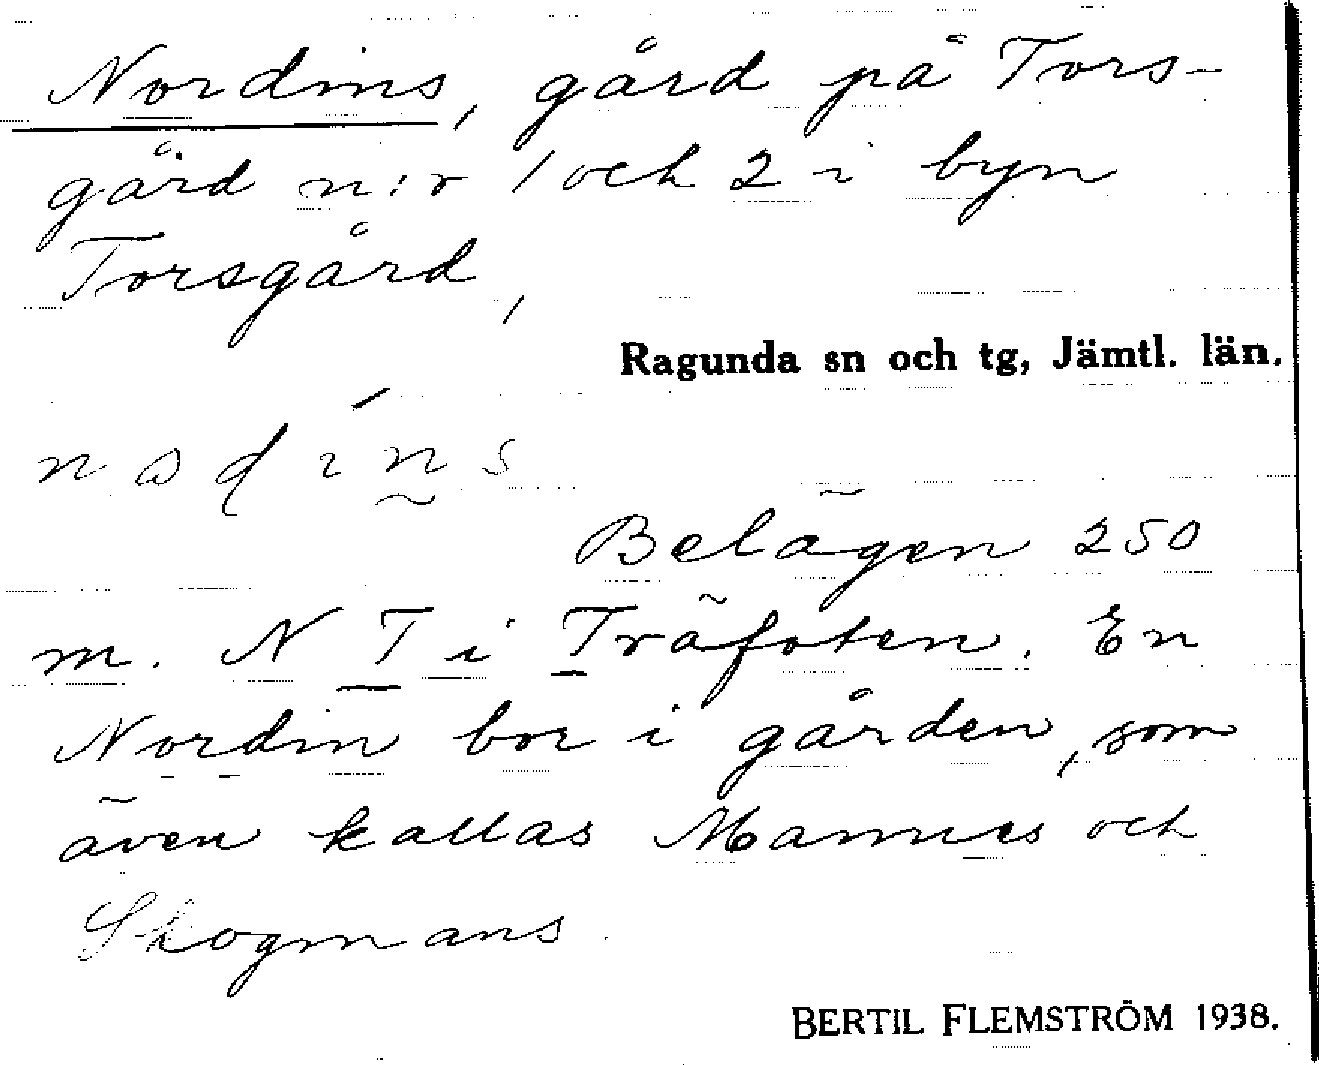 Nordins, gård på Tors-
gård n:r 1 och 2 i byn
Torsgård,
Ragunda sn och tg, Jämtl. län.
Belägen 250
m. N T i Träfoten. En
Nordin bor i gården, som
även kallas Mannes och
Skogmans.
BERTIL FLEMSTRÖM 1938.